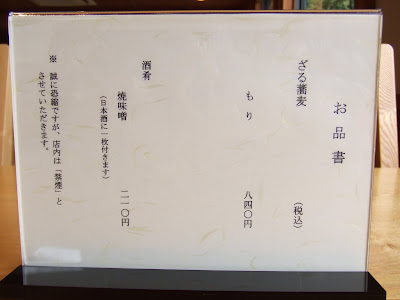 お品書
(税込)
ざる蕎麦
もり 八四〇円
酒肴
焼味噌 二一〇円
(日本酒に一枚付きます)
※ 誠に恐縮ですが、店内は「禁煙」と
させていただきます。